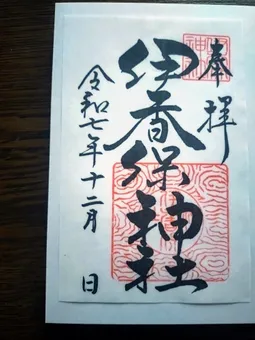 奉拝
伊香保神社
令和七年十二月 日